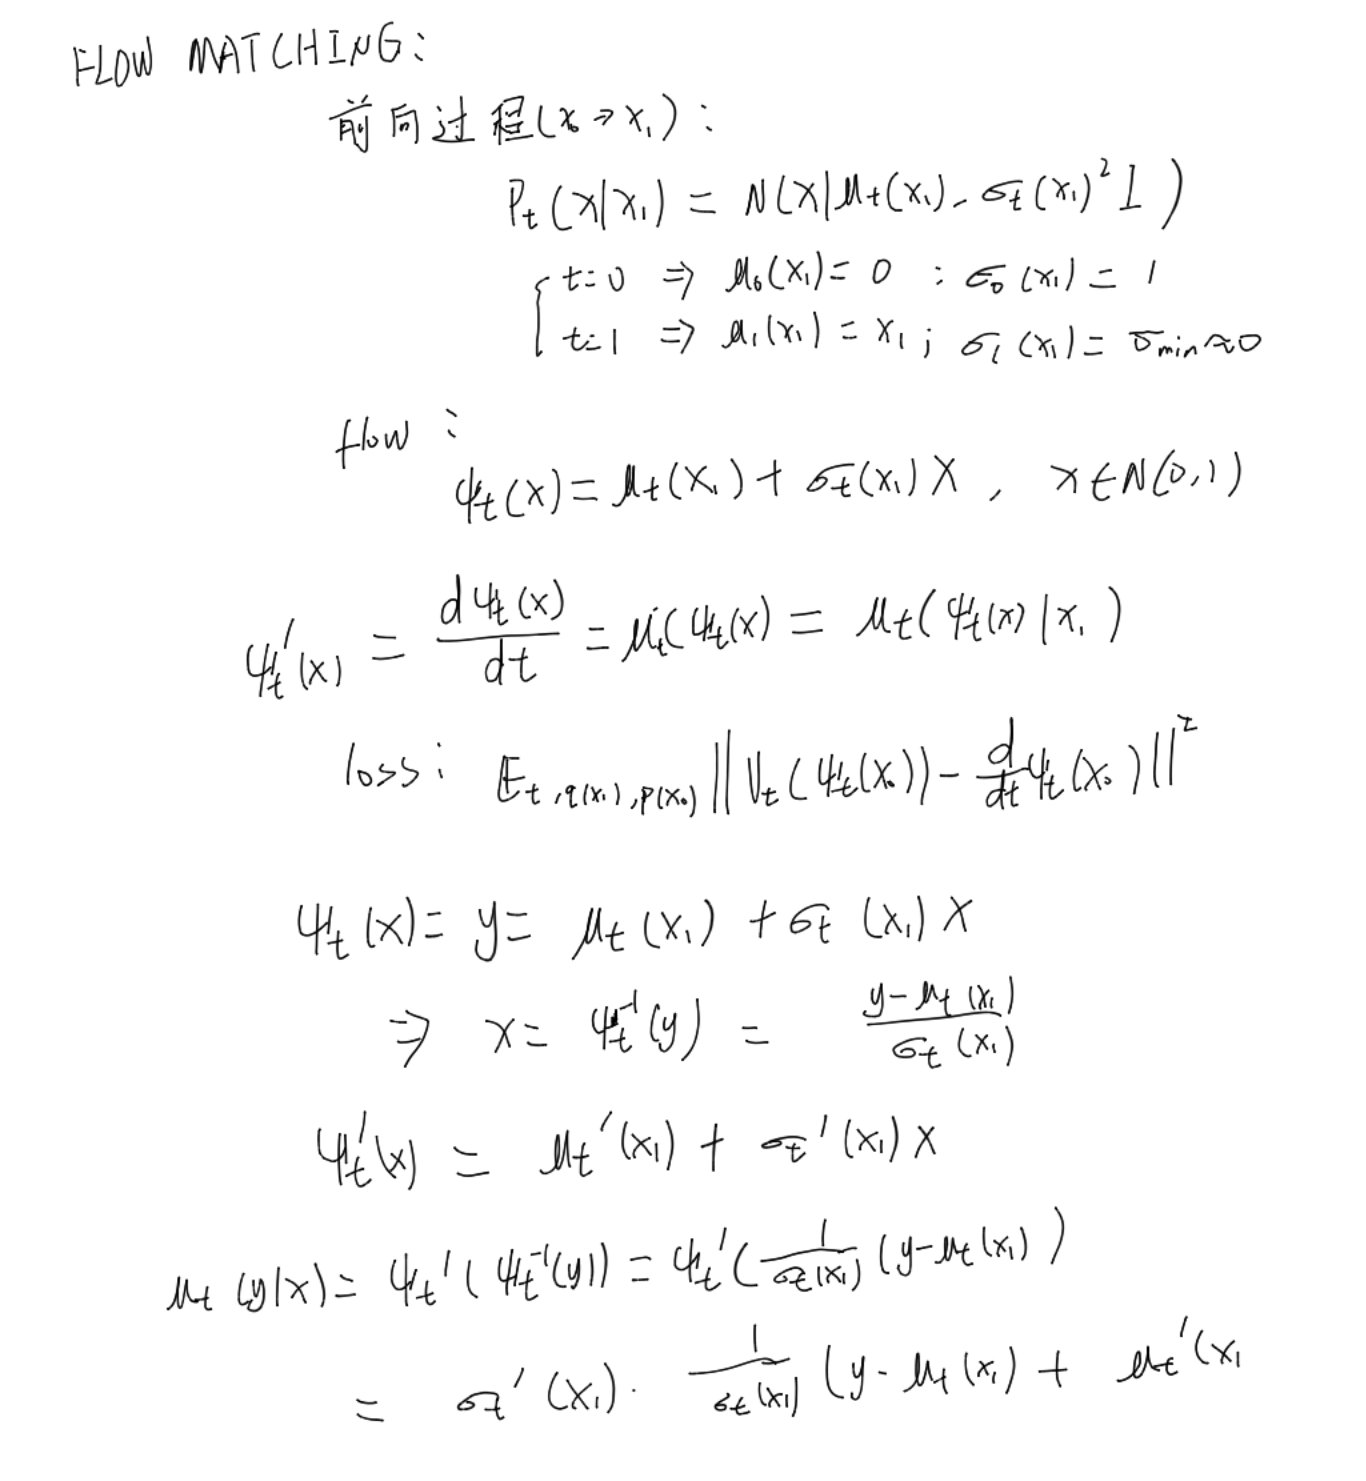 FLOW MATCHING:
前向过程(x₀→x₁):
Pₜ(x|x₁) = N(x|μₜ(x₁), σₜ(x₁)²I)
{ t=0 ⇒ μ₀(x₁)=0 ; σ₀(x₁)=1
t=1 ⇒ μ₁(x₁)=x₁; σ₁(x₁)=σmin≈0
flow:
ψₜ(x)=μₜ(x₁)+σₜ(x₁)x, x∈N(0,1)
ψₜ'(x) = dψₜ(x)/dt = μₜ(ψₜ(x) = μₜ(ψₜ(x)|x₁)
loss: Eₜ,q(x₁),p(x₀) ||Vₜ(ψₜ(x₀)) - d/dt ψₜ(x₀)||²
ψₜ(x)= y= μₜ(x₁) + σₜ(x₁)x
⇒ x= ψₜ⁻¹(y) = (y-μₜ(x₁))/σₜ(x₁)
ψₜ'(x) = μₜ'(x₁) + σₜ'(x₁)x
μₜ(y|x)= ψₜ'(ψₜ⁻¹(y)) = ψₜ'(1/σₜ(x₁) (y-μₜ(x₁))
= σₜ'(x₁)· 1/σₜ(x₁) (y-μₜ(x₁) + μₜ'(x₁